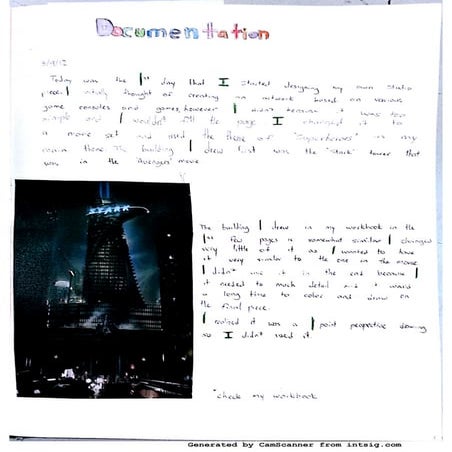 Documentation
Today was the 1st day that I started designing my own studio
piece. I initially thought of creating an artwork based on various
game consoles and games, however I didn't because it was too
simple and I wouldn't fill the page. I changed it to
a more set and used the theme of "Superheroes" as my
main theme. The building I drew first was the "Stark" tower that
was in the 'Avengers' movie
STARK
The building I drew in my workbook in the
1st few pages is somewhat similar. I changed
very little of it as I wanted to have
it very similar to the one in the movie
I didn't use it in the end because I
it needed to much detail and it would
a long time to color and draw on
the final piece.
I realised it was a 1 point perspective drawing
so I didn't used it.
*check my workbook
Generated by CamScanner from intsig.com